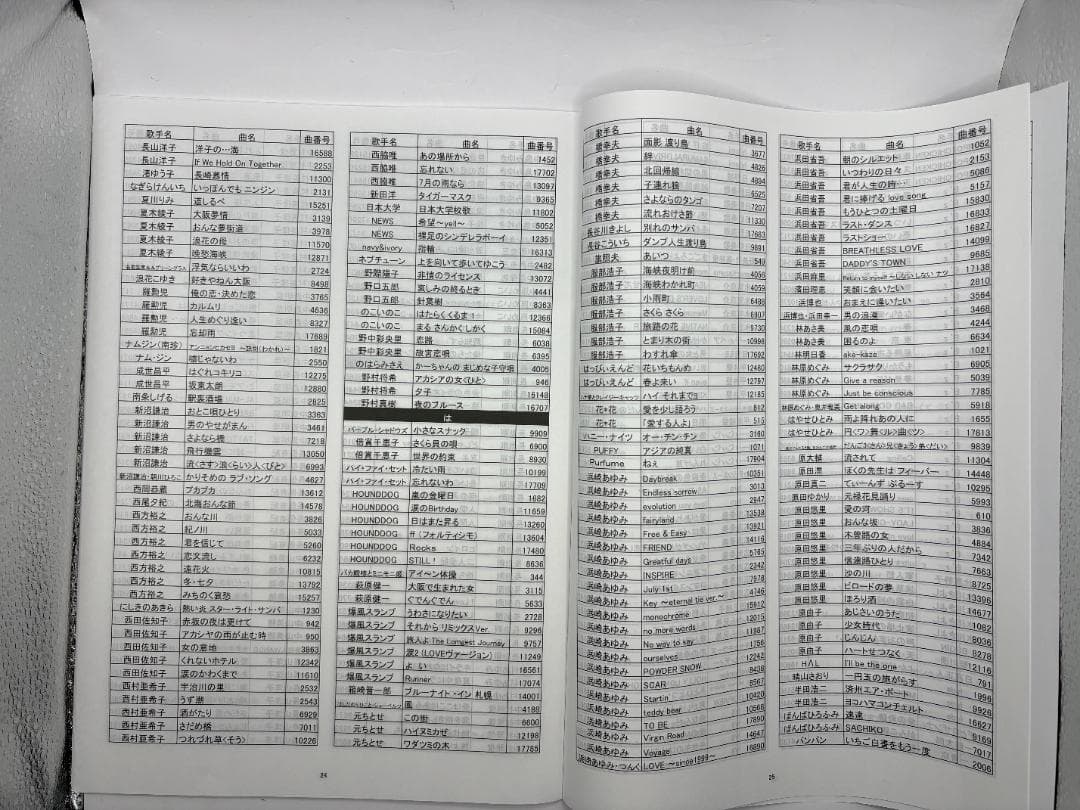 歌手名 曲名 曲番号
長山洋子 洋子の…海 16588
長山洋子 If We Hold On Together 2253
渚ゆう子 長崎慕情 11300
なぎらけんいち いっぽんでも ニンジン 2131
夏川りみ 道しるべ 15251
夏木綾子 大阪夢情 3139
夏木綾子 おんな夢街道 3978
夏木綾子 浪花の母 11570
夏木綾子 晩愁海峡 12871
浮気ならいいわ 2724
浪花こゆき 好きやねん大阪 8498
羅勲児 俺の恋・決めた恋 3765
羅勲児 カルムリ 4636
羅勲児 人生めぐり逢い 8327
羅勲児 忘却雨 17689
ナムジン(南珍) 1821
ナム・ジン 嘘じゃないわ 2550
成世昌平 はぐれコキリコ 12275
成世昌平 坂東太郎 12880
南条しげる 駅裏酒場 2825
新沼謙治 おとこ唄ひとり 3363
新沼謙治 男のやせがまん 3461
新沼謙治 さよなら橋 7218
新沼謙治 飛行機雲 13050
新沼謙治 流〈さす〉浪〈らい〉人〈びと〉 6993
かりそめの ラブ・ソング 4627
西岡恭蔵 プカプカ 13612
西尾夕紀 北海おんな節 14578
西方裕之 おんな川 3826
西方裕之 紀ノ川 5033
西方裕之 君を信じて 5260
西方裕之 恋文流し 6232
西方裕之 遠花火 10815
西方裕之 冬・七夕 13792
西方裕之 みちのく哀愁 15257
にしきのあきら 熱い炎 スター・ライト・サンバ 1230
西田佐知子 赤坂の夜は更けて 942
西田佐知子 アカシヤの雨が止む時 950
西田佐知子 女の意地 3863
西田佐知子 くれないホテル 12342
西田佐知子 涙のかわくまで 11610
西村亜希子 宇治川の里 2532
西村亜希子 うず潮 2543
西村亜希子 酒がたり 6929
西村亜希子 さだめ橋 7011
西村亜希子 つれづれ草〈そう〉 10226
24
歌手名 曲名 曲番号
西脇唯 あの場所から 1452
西脇唯 忘れない 17702
西脇唯 7月の雨なら 13097
新田洋 タイガーマスク 9365
日本大学 日本大学校歌 11802
NEWS 希望〜yell〜 5052
NEWS 裸足のシンデレラボーイ 12351
navy&ivory 指輪 16313
ネプチューン 上を向いて歩いてゆこう 2482
野路陽子 非情のライセンス 13072
野口五郎 哀しみの終るとき 4441
野口五郎 針葉樹 8363
のこいのこ はたらくくるま1 12366
のこいのこ まる さんかくしかく 15084
野中彩央里 恋路 6038
野中彩央里 旅宮恋唄 6395
のはらみさえ かーちゃんの まじめな子守唄 4005
野村将希 アカシアの女〈ひと〉 946
野村将希 夕子 16148
野村真樹 夜のブルース 16707
は
パープル・シャドウズ 小さなスナック 9909
倍賞千恵子 さくら貝の唄 6900
倍賞千恵子 世界の約束 8930
ハイ・ファイ・セット 冷たい雨 10199
ハイ・ファイ・セット 忘れないわ 17709
HOUNDDOG 嵐の金曜日 1682
HOUNDDOG 涙のBirthday 11659
HOUNDDOG 日はまた昇る 13260
HOUNDDOG ff (フォルティシモ) 13604
HOUNDDOG Rocks 17480
HOUNDDOG STILL! 8636
バカ殿様とミニモニ姫 アイ〜ン体操 344
萩原健一 大阪で生まれた女 3115
萩原健一 ぐでんぐでん 5633
爆風スランプ うわさになりたい 2728
爆風スランプ それから リミックスVer. 9296
爆風スランプ 旅人よ The Longest Journey 9757
爆風スランプ 涙2 (LOVEヴァージョン) 11249
爆風スランプ よ い 16561
爆風スランプ Runner 17074
箱崎晋一郎 ブルーナイト・イン 札幌 14001
風 4188
元ちとせ この街 6600
元ちとせ ハイヌミカゼ 12198
元ちとせ ワダツミの木 17785
歌手名 曲名 曲番号
橋幸夫 面影 渡り鳥 3677
橋幸夫 絆
橋幸夫 北回帰線 4826
橋幸夫 子連れ狼 4894
橋幸夫 さよならのタンゴ
橋幸夫 流れおけさ節 7207
長谷川きよし 別れのサンバ 11330
長谷こういち ダンプ人生渡り鳥 17683
旗照夫 あいつ 9891
服部浩子 海峡夜明け前 540
服部浩子 海峡わかれ町 4056
服部浩子 小雨町 4059
服部浩子 さくら さくら 6498
服部浩子 旅路の花
服部浩子 とまり木の街 10998
服部浩子 わすれ傘 17692
はっぴいえんど 花いちもんめ 12480
はっぴいえんど 春よ来い 12797
ハイ それまでヨ 12185
花*花 愛を少し語ろう 612
花*花 「愛する人よ」 515
ハニー・ナイツ オー・チン・チン 3160
PUFFY アジアの純真 1071
Perfume ねぇ 17904
浜崎あゆみ Daybreak 10351
浜崎あゆみ Endless sorrow 3013
浜崎あゆみ evolution 2947
浜崎あゆみ fairyland 13518
浜崎あゆみ Free & Easy 13921
浜崎あゆみ FRIEND 14119
浜崎あゆみ Greatful days 5765
浜崎あゆみ INSPIRE 2342
浜崎あゆみ July 1st 7878
浜崎あゆみ Key 〜eternal tie ver.〜 4746
浜崎あゆみ monochrome 15912
浜崎あゆみ no more words 12015
浜崎あゆみ No way to say 11987
浜崎あゆみ ourselves 1756
浜崎あゆみ POWDER SNOW 12242
浜崎あゆみ SCAR 8438
浜崎あゆみ Startin 8567
浜崎あゆみ teddy bear 10420
浜崎あゆみ TO BE 10566
浜崎あゆみ Virgin Road 17890
浜崎あゆみ Voyage 14647
浜崎あゆみ・つんく LOVE 〜since1999〜 16890
25
歌手名 曲名 曲番号
浜田省吾 朝のシルエット 1052
浜田省吾 いつわりの日々 2153
浜田省吾 君が人生の時… 5086
浜田省吾 君に捧げる love song 5157
浜田省吾 もうひとつの土曜日 15830
浜田省吾 ラスト・ダンス 16833
浜田省吾 ラストショー 16827
浜田省吾 BREATHLESS LOVE 14099
浜田省吾 DADDY'S TOWN 9685
浜田麻里 17138
濱田理恵 笑顔に会いたい 2810
浜博也 おまえに逢いたい 3564
浜博也・浜田幸一 男の浪漫 3468
林あさ美 風の恋唄 4244
林あさ美 困るのよ 6634
林明日香 ake-kaze 1021
林原めぐみ サクラサク 6905
林原めぐみ Give a reason 5039
林原めぐみ Just be conscious 7785
林原めぐみ・奥井雅美 Get along 5918
はやせひとみ 雨よ降れあの人に 1655
はやせひとみ 円〈ワ〉舞〈ル〉曲〈ツ〉 17813
9839
原大輔 流されて 11304
原田潤 ぼくの先生は フィーバー 14448
原田真二 てぃーんず ぶるーす 10295
原田ゆかり 元禄花見踊り 5993
原田悠里 愛の河 610
原田悠里 おんな坂 3836
原田悠里 木曽路の女 4884
原田悠里 三年ぶりの人だから 7342
原田悠里 信濃路ひとり 7663
原田悠里 沙の川 8725
原田悠里 ビロードの夢 13396
原田悠里 ほろり酒 14677
原由子 あじさいのうた 1082
原由子 少女時代 8036
原由子 じんじん 8278
原由子 ハートせつなく 12116
HAL I'll be the one 791
晴山さおり 一円玉の旅がらす 1996
半田浩二 済州エア・ポート 9926
半田浩二 ヨコハマコンチェルト 16627
ばんばひろふみ 速達 9169
ばんばひろふみ SACHIKO 7017
バンバン いちご白書をもう一度 2006